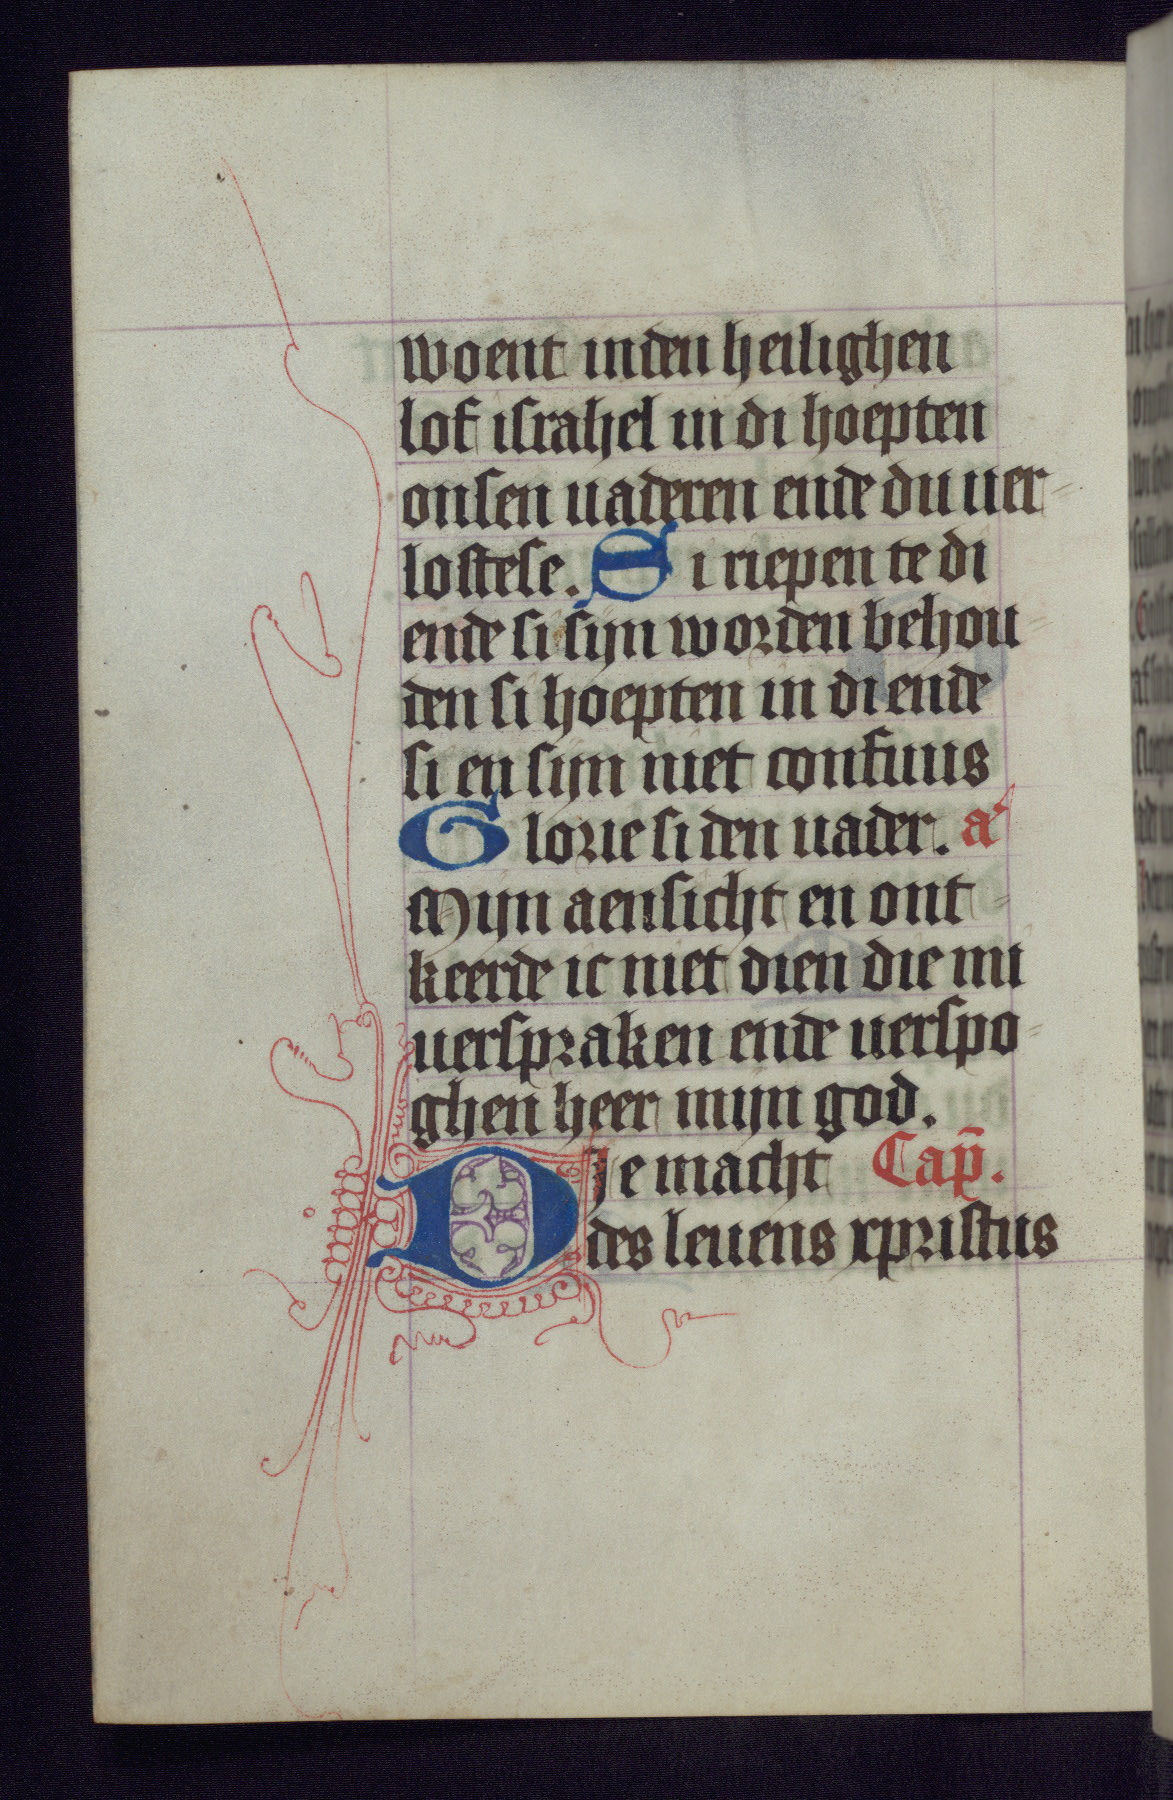 woent inden heilighen
lof israhel in di hoepten
onsen uaderen ende du uer
lostese. Si riepen te di
ende si sijn worden behou
den si hoepten in di ende
si en sijn niet confuus
Glorie si den uader. a
Mijn aensicht en ont
keerde ic niet dien die mi
uerspraken ende uerspo
ghen heer mijn god.
Die macht Cap̄.
des leuens xpristus